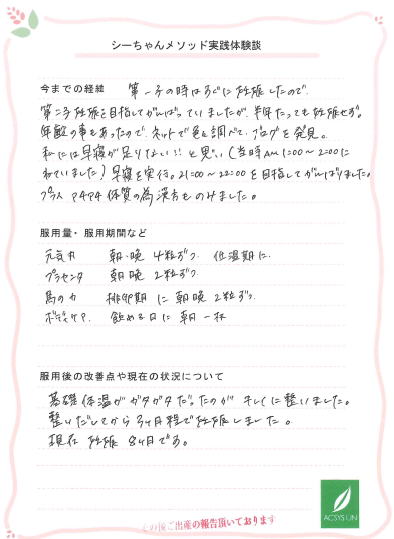 シーちゃんメソッド実践体験談
今までの経緯 第一子の時はすぐに妊娠したので、
第二子妊娠を目指してがんばっていましたが、半年たっても妊娠せず。
年齢の事もあったので、ネットで色々調べて、ブログを発見。
私には早寝が足りない!!と思い(当時AM1:00〜2:00に
ねていました)早寝を実行。21:00〜22:00を目指してがんばりました。
プラス P4P4体質の為漢方ものみました。
服用量・服用期間など
元気力 朝・晩 4粒ずつ 低温期に
プラセンタ 朝晩 2粒ずつ
馬の力 排卵期に朝晩 2粒ずつ
ボディケア 飲める日に朝一杯
服用後の改善点や現在の状況について
基礎体温がガタガタだったのが キレイに整いました。
整いだしてから3ヶ月程で妊娠しました。
現在 妊娠 8ヶ月です。
その後ご出産の報告頂いております
ACSYS UN